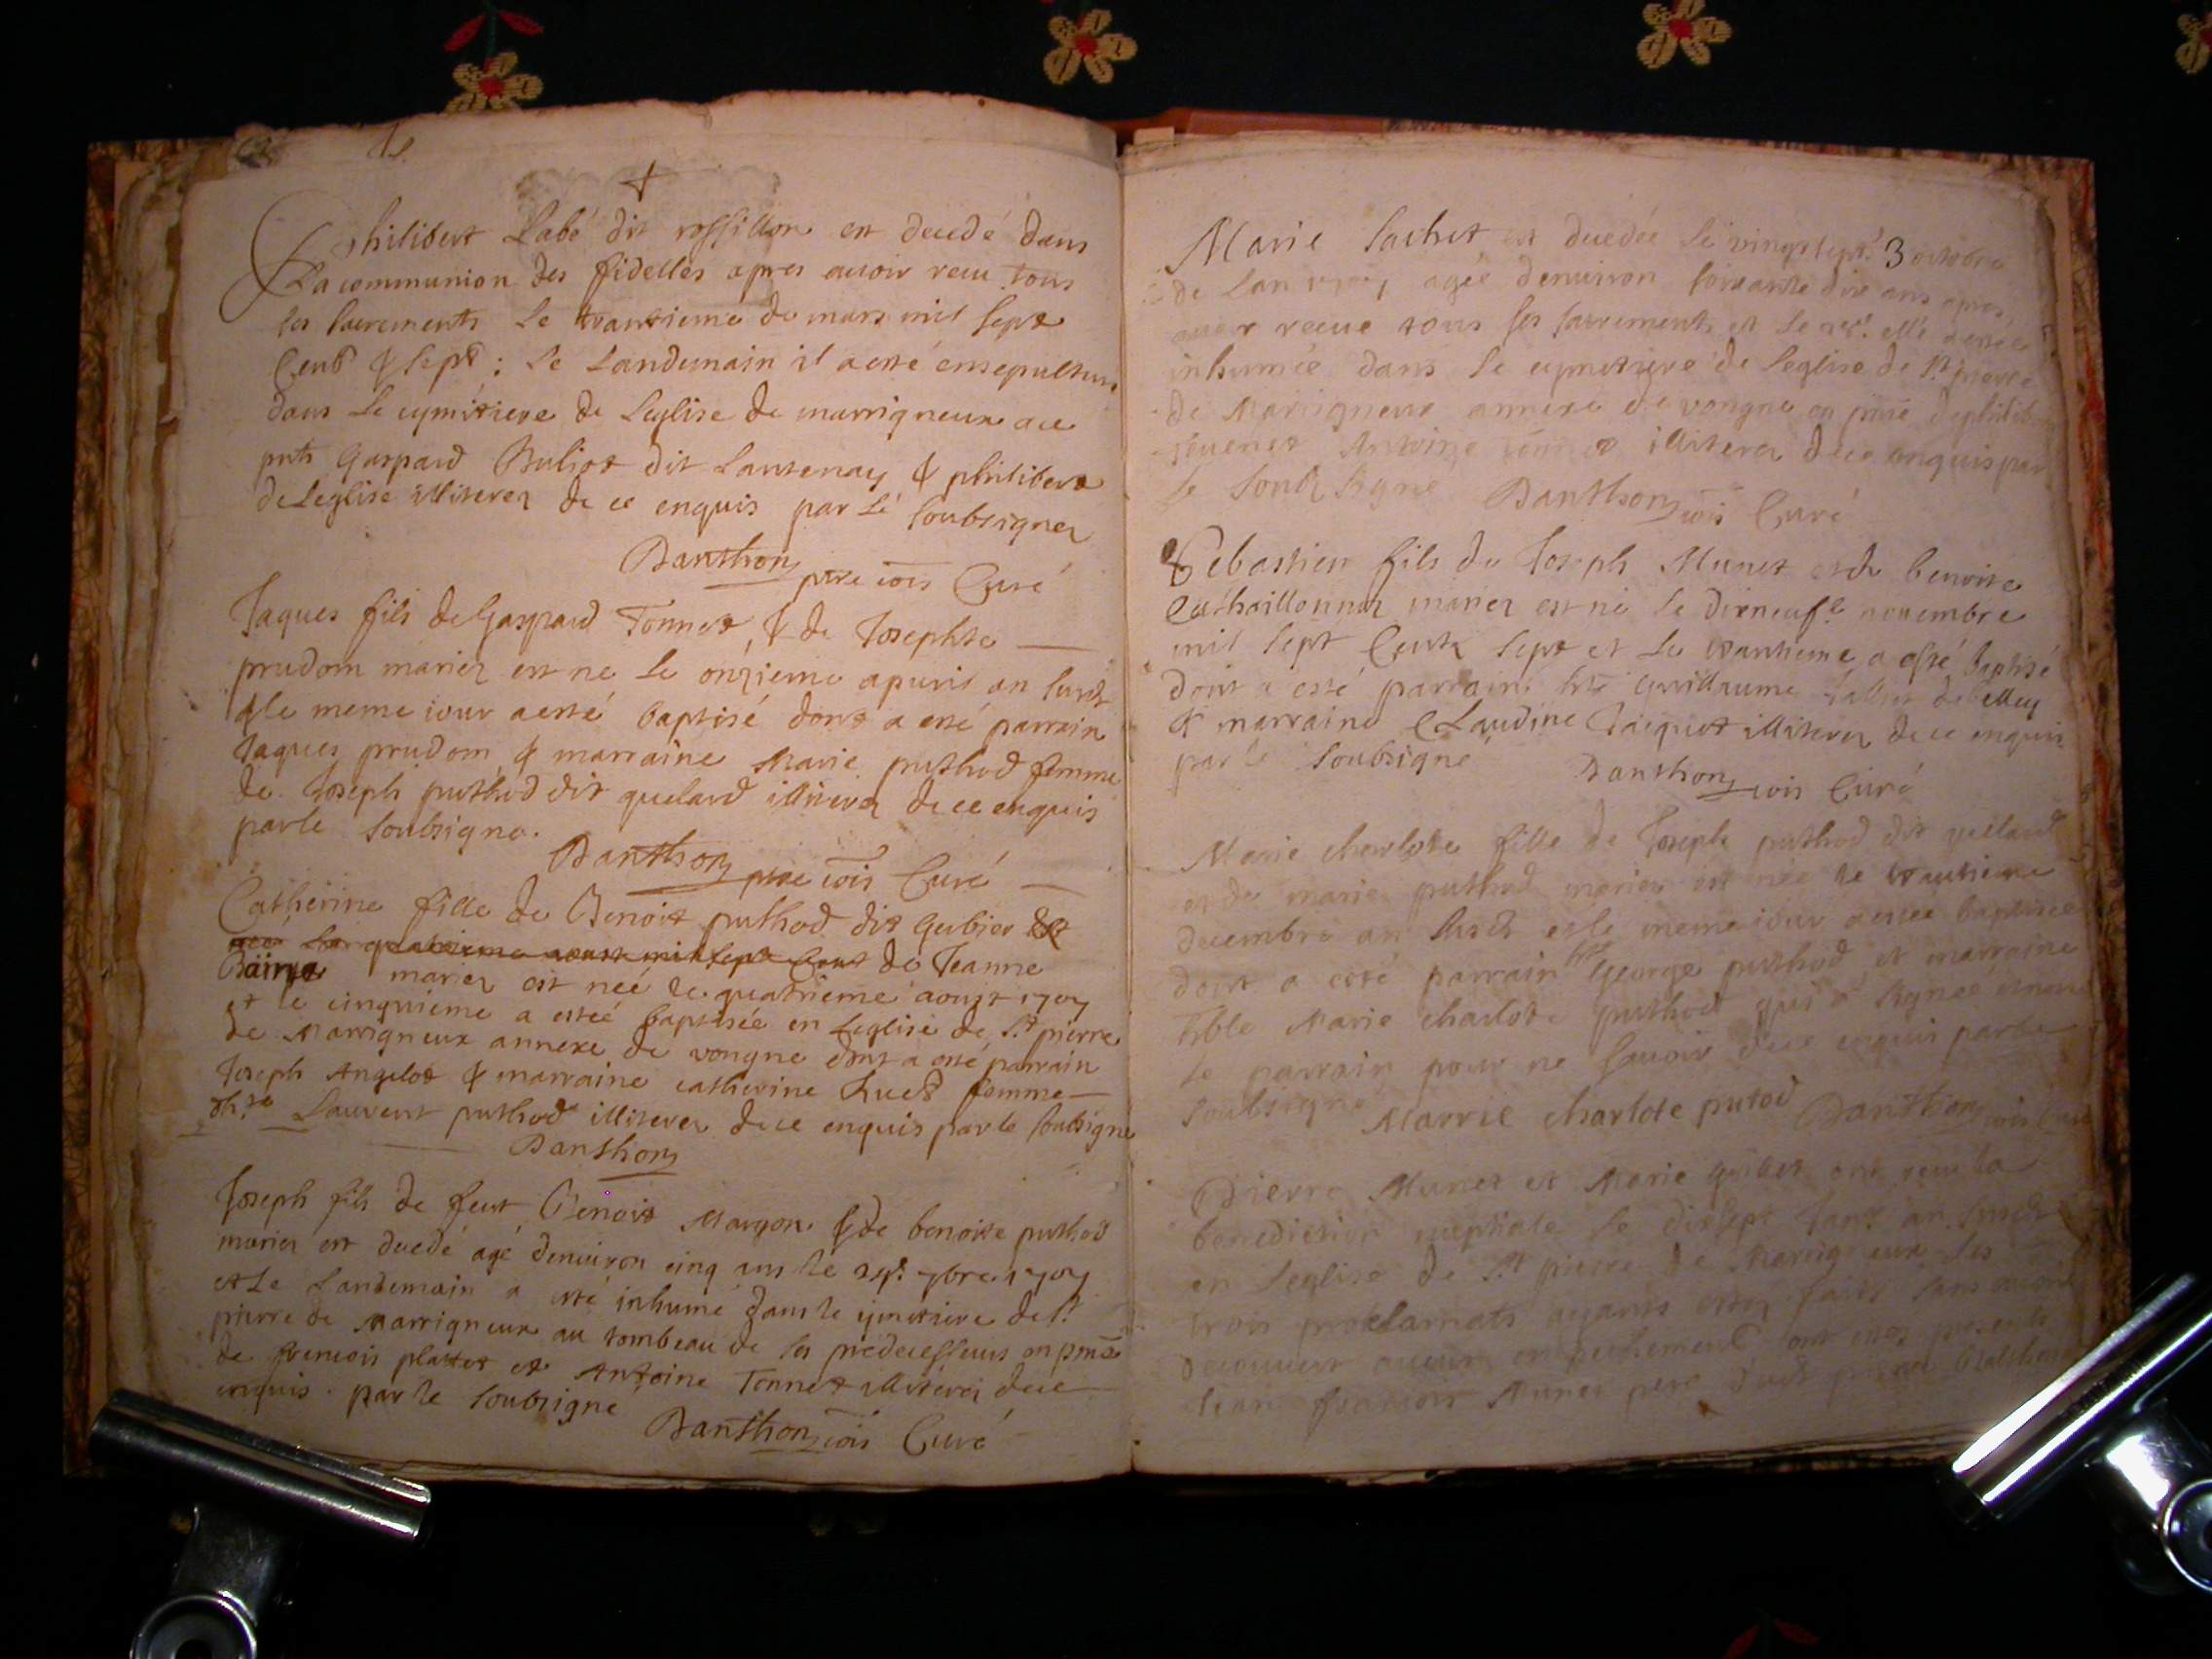 Philibert Labé dit rossillon est decedé dans
La communion des fidelles apres auoir recu tous
les sacrements le trantieme de mars mil sept
Cents & sept : Le Landemain il a esté ensepulturé
dans Le cymitiere de Leglise de marrigneux ace
pnts Gaspard Buliot dit Lantenay & philibert
de Leglise illiterez de ce enquis par Le soubsignez
Danthon ptre Curé
Jaques fils de Gaspard Tonnet & de Josephte
prudom mariez est ne Le onzieme apuril an susdt
& le meme iour a esté baptisé dont a esté parrain
Jaques prudom & marraine Marie puthod femme
de Joseph puthod dit quelard illiterez de ce enquis
par le soubsigne.
Danthon ptre Curé
Catherine fille de Benoit puthod dit Gubier et
quatrieme aoust mil sept Cent de Jeanne
mariez est née le quatrieme aoust 1707
et le cinquieme a esteé baptisée en Leglise de St pierre
de Marrigneux annexe de vongne dont a esté parrain
Joseph Angelot & marraine catherine huet femme
Laurent puthod illiterez de ce enquis par le soubsigne
Danthon
Joseph fils de feut Benoit Margon & de benoite puthod
mariez est decedé agé denuiron cinq ans le 7bre 1707
et Le Landemain a esté inhumé dans le ymetiere de St
pierre de Marrigneux au tombeau de ses predecesseurs en pnce
de francois plattet et Antoine Tonnet illiterez de ce
enquis par le soubsigne
Danthon Curé
Marie Sachet est decedée Le vingt sept octobre
de Lan agée denuiron soixante dix ans apres
auoir receue tous les sacrements et Le elle a estée
inhumée dans le cymetiere de leglise de St pierre
de Marrigneux annexe de vongne en pnce de philib
Antoine illiterez de ce enquis par
le soubsigne Danthon Curé
Sebastien fils de Joseph Munet et de benoite
mariez est né le dixneufe nouembre
mil sept Cents sept et Le trantieme a esté baptisé
dont a esté parrain Guillaume de belley
& marraine Claudine Jacquet illiterez de ce enquis
par le soubsigné Danthon Curé
Marie charlote fille de Joseph puthod dit quelard
et de marie puthod mariez est née le trantieme
decembre an susdt et le meme iour a estée baptisée
dont a esté parrain George puthod et marraine
Marie charlote puthod qui a signée et non
le parrain pour ne sauoir de ce enquis par le
soubsigne Marrie charlote putod Danthon Curé
Pierre Munet et Marie Guillet ont receu la
benediction nuptiale le dixsept an susdt
en Leglise de St pierre de Marrigneux les
trois proclamats ayants estez faits sans auoir
decouuert aucun empechement ont estez presents
francois Munet pere